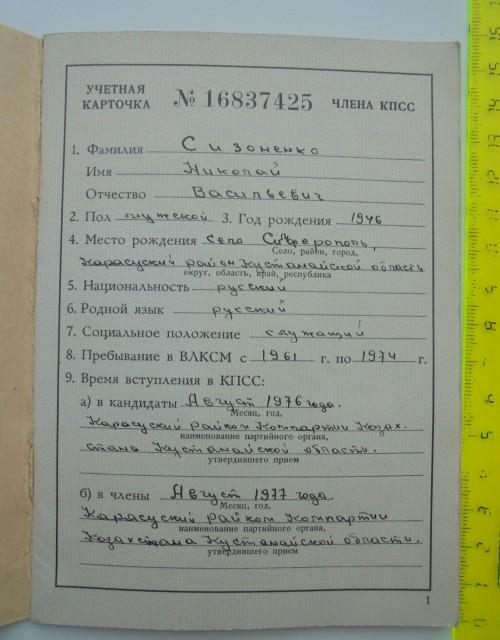 УЧЕТНАЯ КАРТОЧКА № 16837425 ЧЛЕНА КПСС
1. Фамилия Сизоненко
Имя Николай
Отчество Васильевич
2. Пол мужской 3. Год рождения 1946
4. Место рождения село Симферополь,
Село, район, город,
Карасуский район Кустанайской области
округ, область, край, республика
5. Национальность русский
6. Родной язык русский
7. Социальное положение служащий
8. Пребывание в ВЛКСМ с 1961 г. по 1974 г.
9. Время вступления в КПСС:
а) в кандидаты Август 1976 года.
Месяц, год,
Карасуский райком Компартии Казах-
наименование партийного органа,
стана Кустанайской области.
утвердившего прием
б) в члены Август 1977 года.
Месяц, год,
Карасуский райком Компартии
наименование партийного органа,
Казахстана Кустанайской области.
утвердившего прием
1